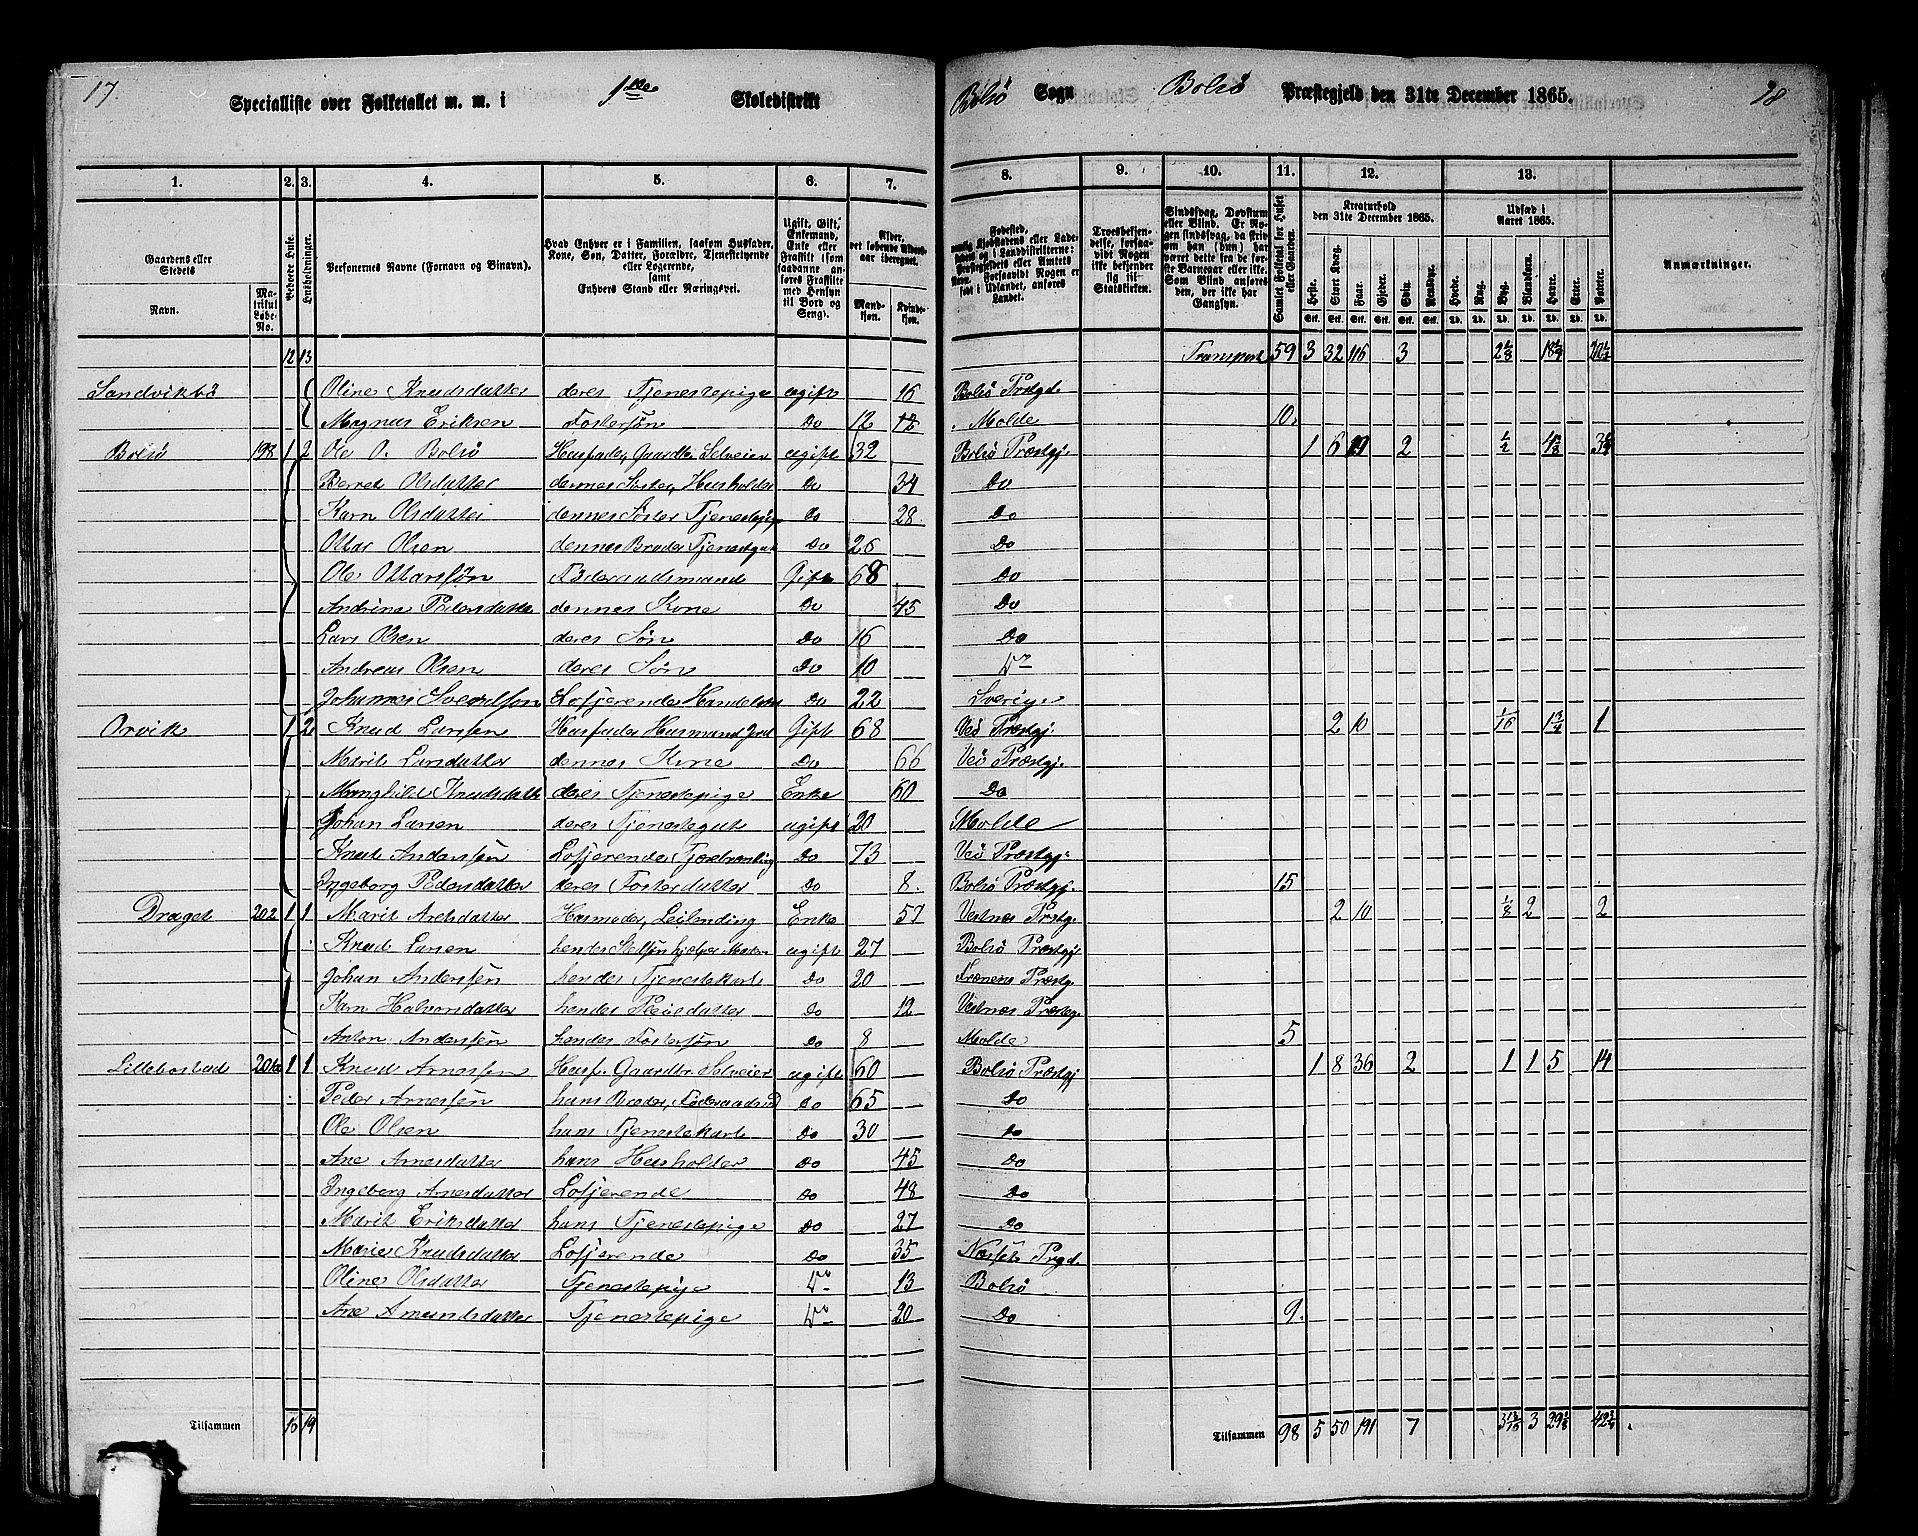 17.
Specialliste over Folketallet m. m. i 1ste Skoledistrikt
Bolsö Sogn Bolsö Præstegjeld den 31te December 1865.
18
1. 2. 3. 4. 5. 6. 7. 8. 9. 10. 11. 12. 13.
Gaardens eller Stedets
Navn.
Matrikul Løbe-No.
Beboede Huse.
Husholdninger.
Personernes Navne (Fornavn og Binavn).
Hvad Enhver er i Familien, saasom Husfader, Kone, Søn, Datter, Forældre, Tjenestetyende eller Logerende, samt Enhvers Stand eller Næringsvei.
Ugift, Gift, Enkemand, Enke eller Fraskilt
Alder, det løbende Aldersaar iberegnet.
Mandkjøn.
Kvindekjøn.
Fødested,
Troesbekjendelse, forsaavidt Nogen ikke bekjender sig til Statskirken.
Sindssvag, Døvstum eller Blind.
Samlet Folketal for Huset eller Gaarden.
Kreaturhold den 31te December 1865.
Udsæd i Aaret 1865.
Anmærkninger.
Heste. Stort Kvæg. Faar. Gjeder. Svin. Rensdyr. Hvede. Rug. Byg. Blandkorn. Havre. Erter. Poteter.
12 13 Transport 59 3 32 116 3 2 1/8
Sandvikbö Oline Knudsdatter deres Tjenestepige ugift 16 Bolsö Prstgd.
Magnus Eriksen Fostersøn Do 12 Molde 10.
Bolsö 198 1 2 Ole O. Bolsö Husfader, Gaardbr. Selveier ugift 32 Bolsö Præstgj. 1 6 19 2 1/2
Berret Olsdatter dennes Søster, Husholder Do 34 Do
Karn Olsdatter dennes Søster Tjenestepige Do 28 Do
Ottar Olsen dennes Broder Tjenestgut Do 26 Do
Ole Ottarsøn Föderaadsmand Gift 68 Do
Andrine Pedersdatter dennes Kone Do 45 Do
Lars Olsen deres Søn Do 16 Do
Andreas Olsen deres Søn Do 10 Do
Johannes Logjerende Do 22 Sverige
Orvik 1 2 Knud Larsen Husfader Husmand Jord Gift 68 Veö Præstgj. 2 10 1/16 1 3/4 1
Marit Larsdatter dennes Kone Do 66 Veö Præstgj.
Knudsdatter deres Tjenestepige Enke 60 Do
Johan Larsen deres Tjenestegut ugift 20 Molde
Knud Anderssen Logjerende, Do 73 Veö Præstgj.
Ingeborg Pedersdatter deres Fosterdatter Do 8. Bolsö Præstgj. 15
Draget 202 1 1 Marit Husmoder, Leilending Enke 57 Vestnes Prstg. 2 10 1/8 2 2
Knud Larsen hendes Stedsøn hjelper Moderen ugift 27 Bolsö Præstgj
Johan Anderssen hendes Tjenestekarl Do 20 Frænens Præstg.
Karn Halvorsdatter hendes Pleiedatter Do 12 Vestnes Præstg.
Anton Anderssen hendes Fostersøn Do 8 Molde 5
Lillebostad 1 1 Knud Arnessen Husf. Gaardbr. Selveier ugift 60 Bolsö Præstgj 1 8 36 2 1 1 5 14
Peder Arnessen hans Broder, Föderaadsmd Do 65 Do
Ole Olsen hans Tjenestekarl Do 30 Do
Ane Arnesdatter hans Husholder Do 45 Do
Ingeborg Arnesdatter Logjerende Do 48 Do
Marit Eriksdatter hans Tjenestepige Do 27 Do
Marie Knudsdatter Logjerende Do 35 Næssets Prgd.
Oline Olsdatter Tjenestepige Do 13 Bolsö
Ane Amundsdatter Tjenestepige Do 20 Do 9.
Tilsammen 16 19 Tilsammen 98 5 50 191 7 3